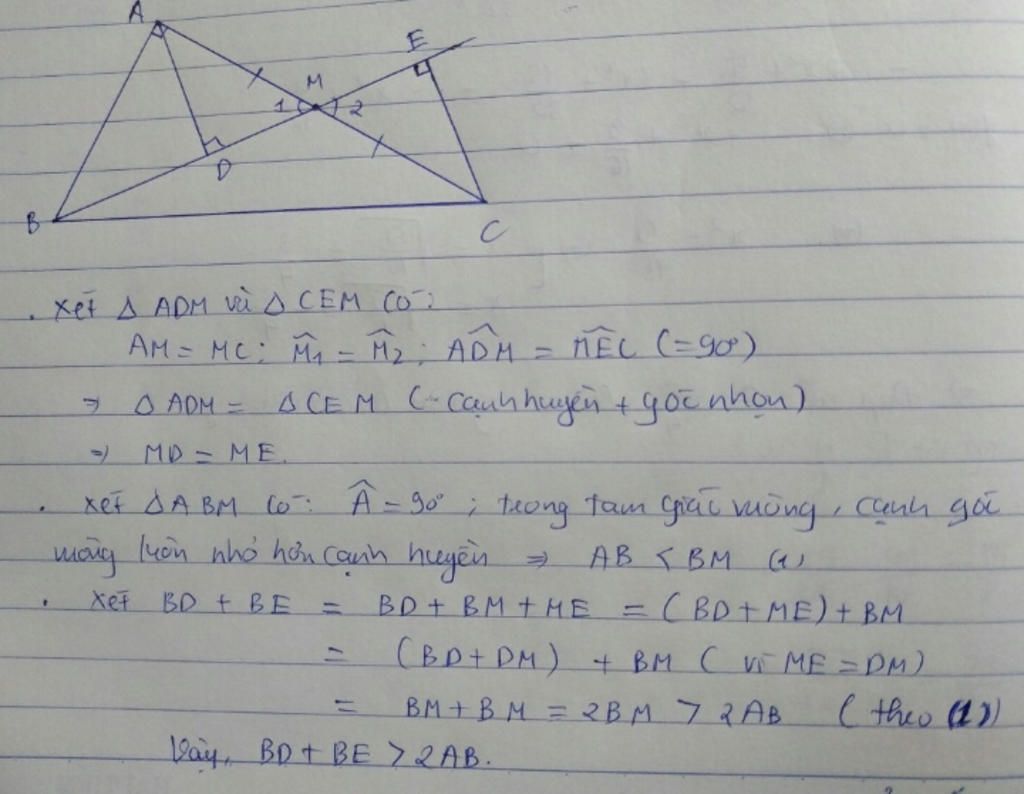 A
E
M
1 2
D
B
C
. Xét Δ ADM và Δ CEM có:
AM = MC; M̂₁ = M̂₂; ADM̂ = MEĈ (=90°)
⇒ Δ ADM = Δ CEM (cạnh huyền + góc nhọn)
⇒ MD = ME.
. Xét Δ ABM có: Â = 90° ; trong tam giác vuông, cạnh góc
vuông luôn nhỏ hơn cạnh huyền ⇒ AB < BM (1)
. Xét BD + BE = BD + BM + ME = (BD + ME) + BM
= (BD + DM) + BM (vì ME = DM)
= BM + BM = 2BM > 2AB (theo (1))
Vậy, BD + BE > 2AB.